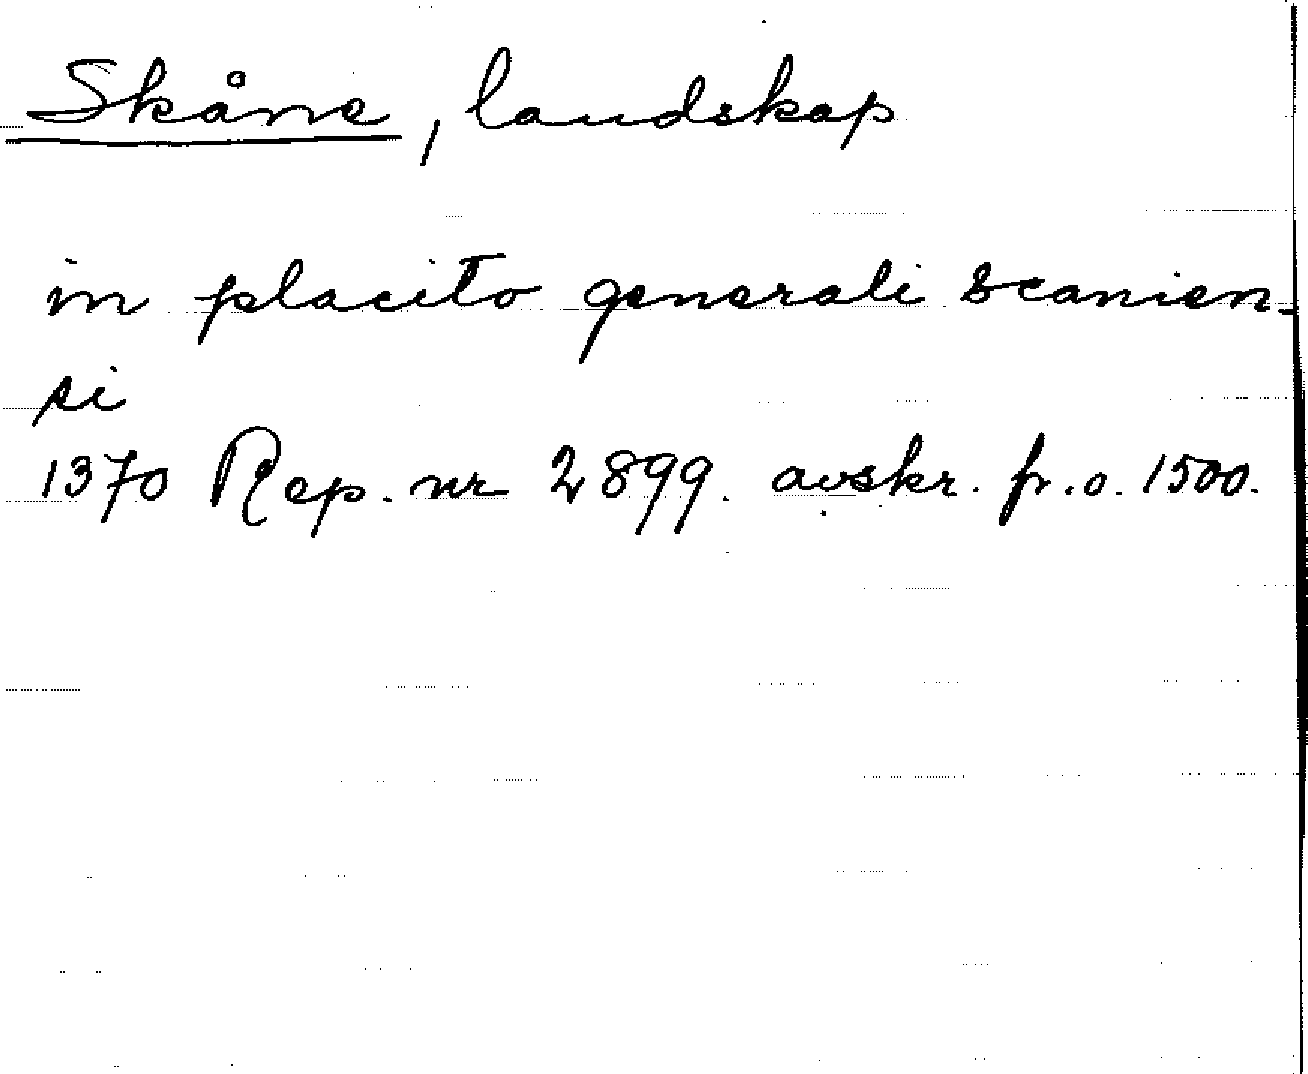 Skåne, landskap
in placito generali scanien-
si
1370 Rep. nr 2899. avskr. fr. o. 1500.